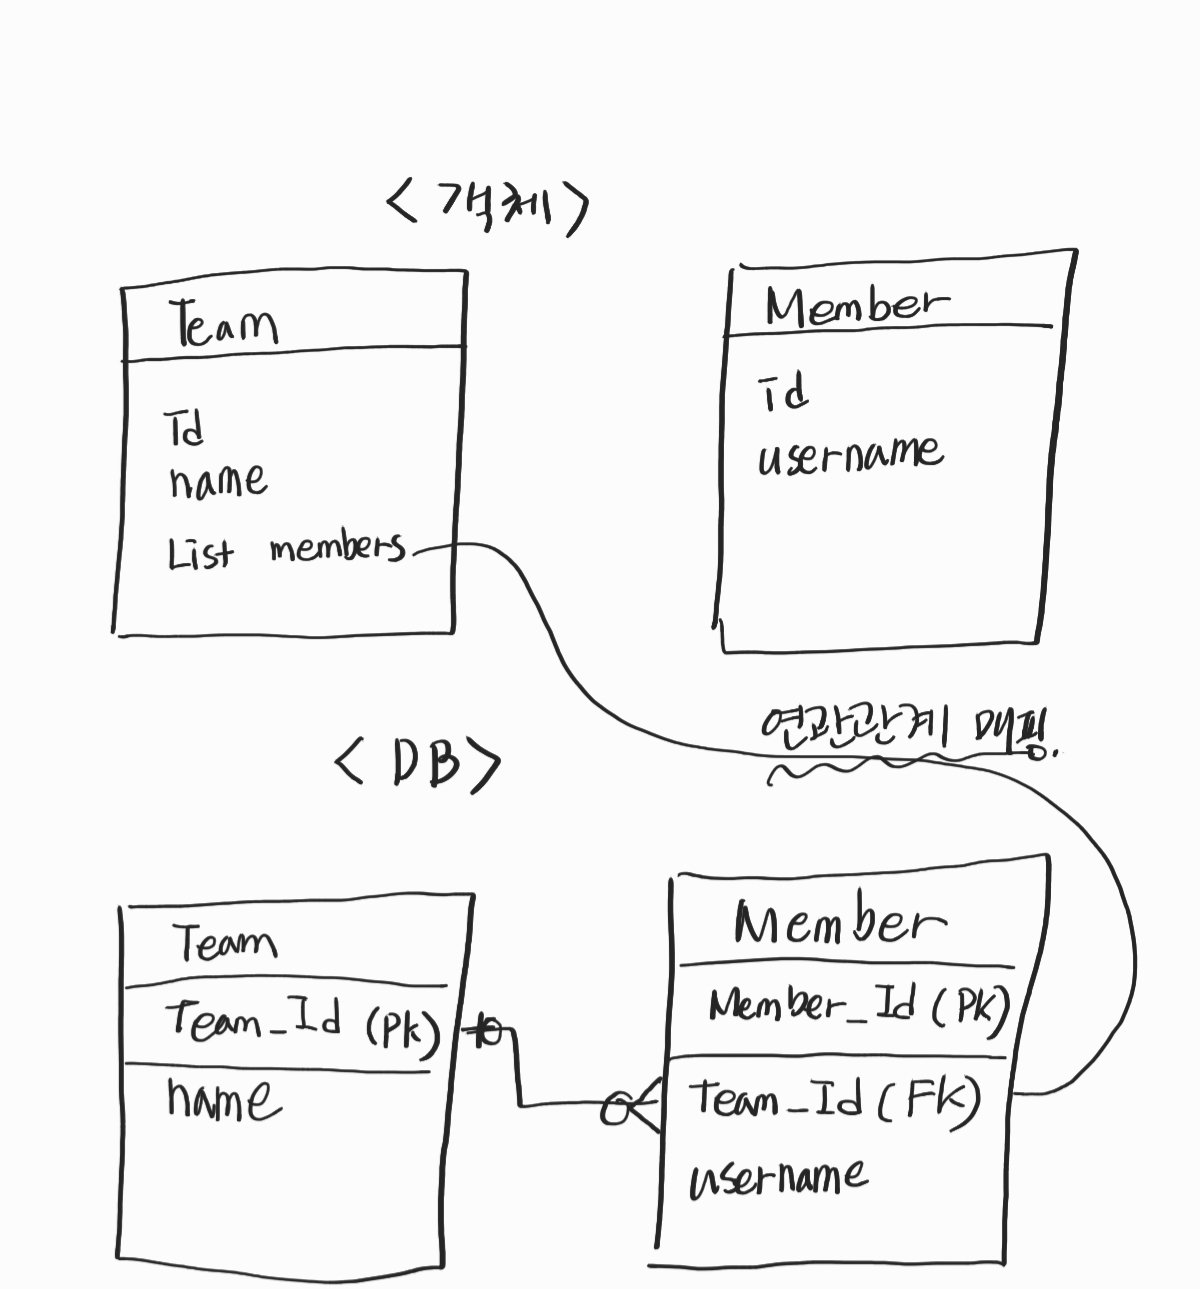 <객체>
Team
Id
name
List members
Member
id
username
연관관계 매핑.
<DB>
Team
Team_Id (Pk)
name
Member
Member_Id (Pk)
Team_Id (Fk)
username